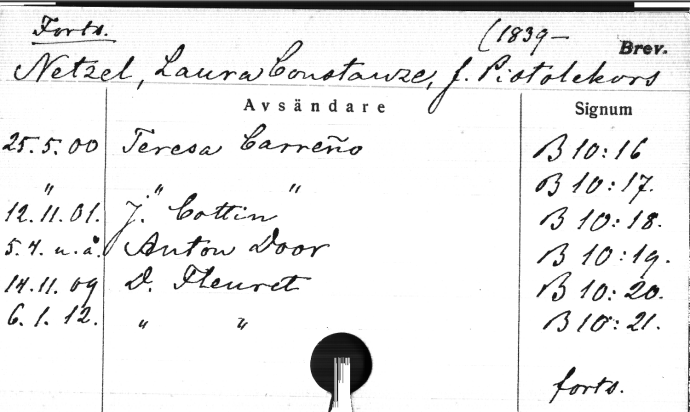 Forts.
(1839-
Brev.
Netzel, Laura Constanze, f. Pistolekors
Avsändare Signum
25.5.00 Teresa Carreño B 10:16
" " " B 10:17.
12.11.01. J. Cottin B 10:18.
5.4. u.å. Anton Door B 10:19.
14.11.09 D. Fleuret B 10:20.
6.1.12. " " B 10:21.
forts.